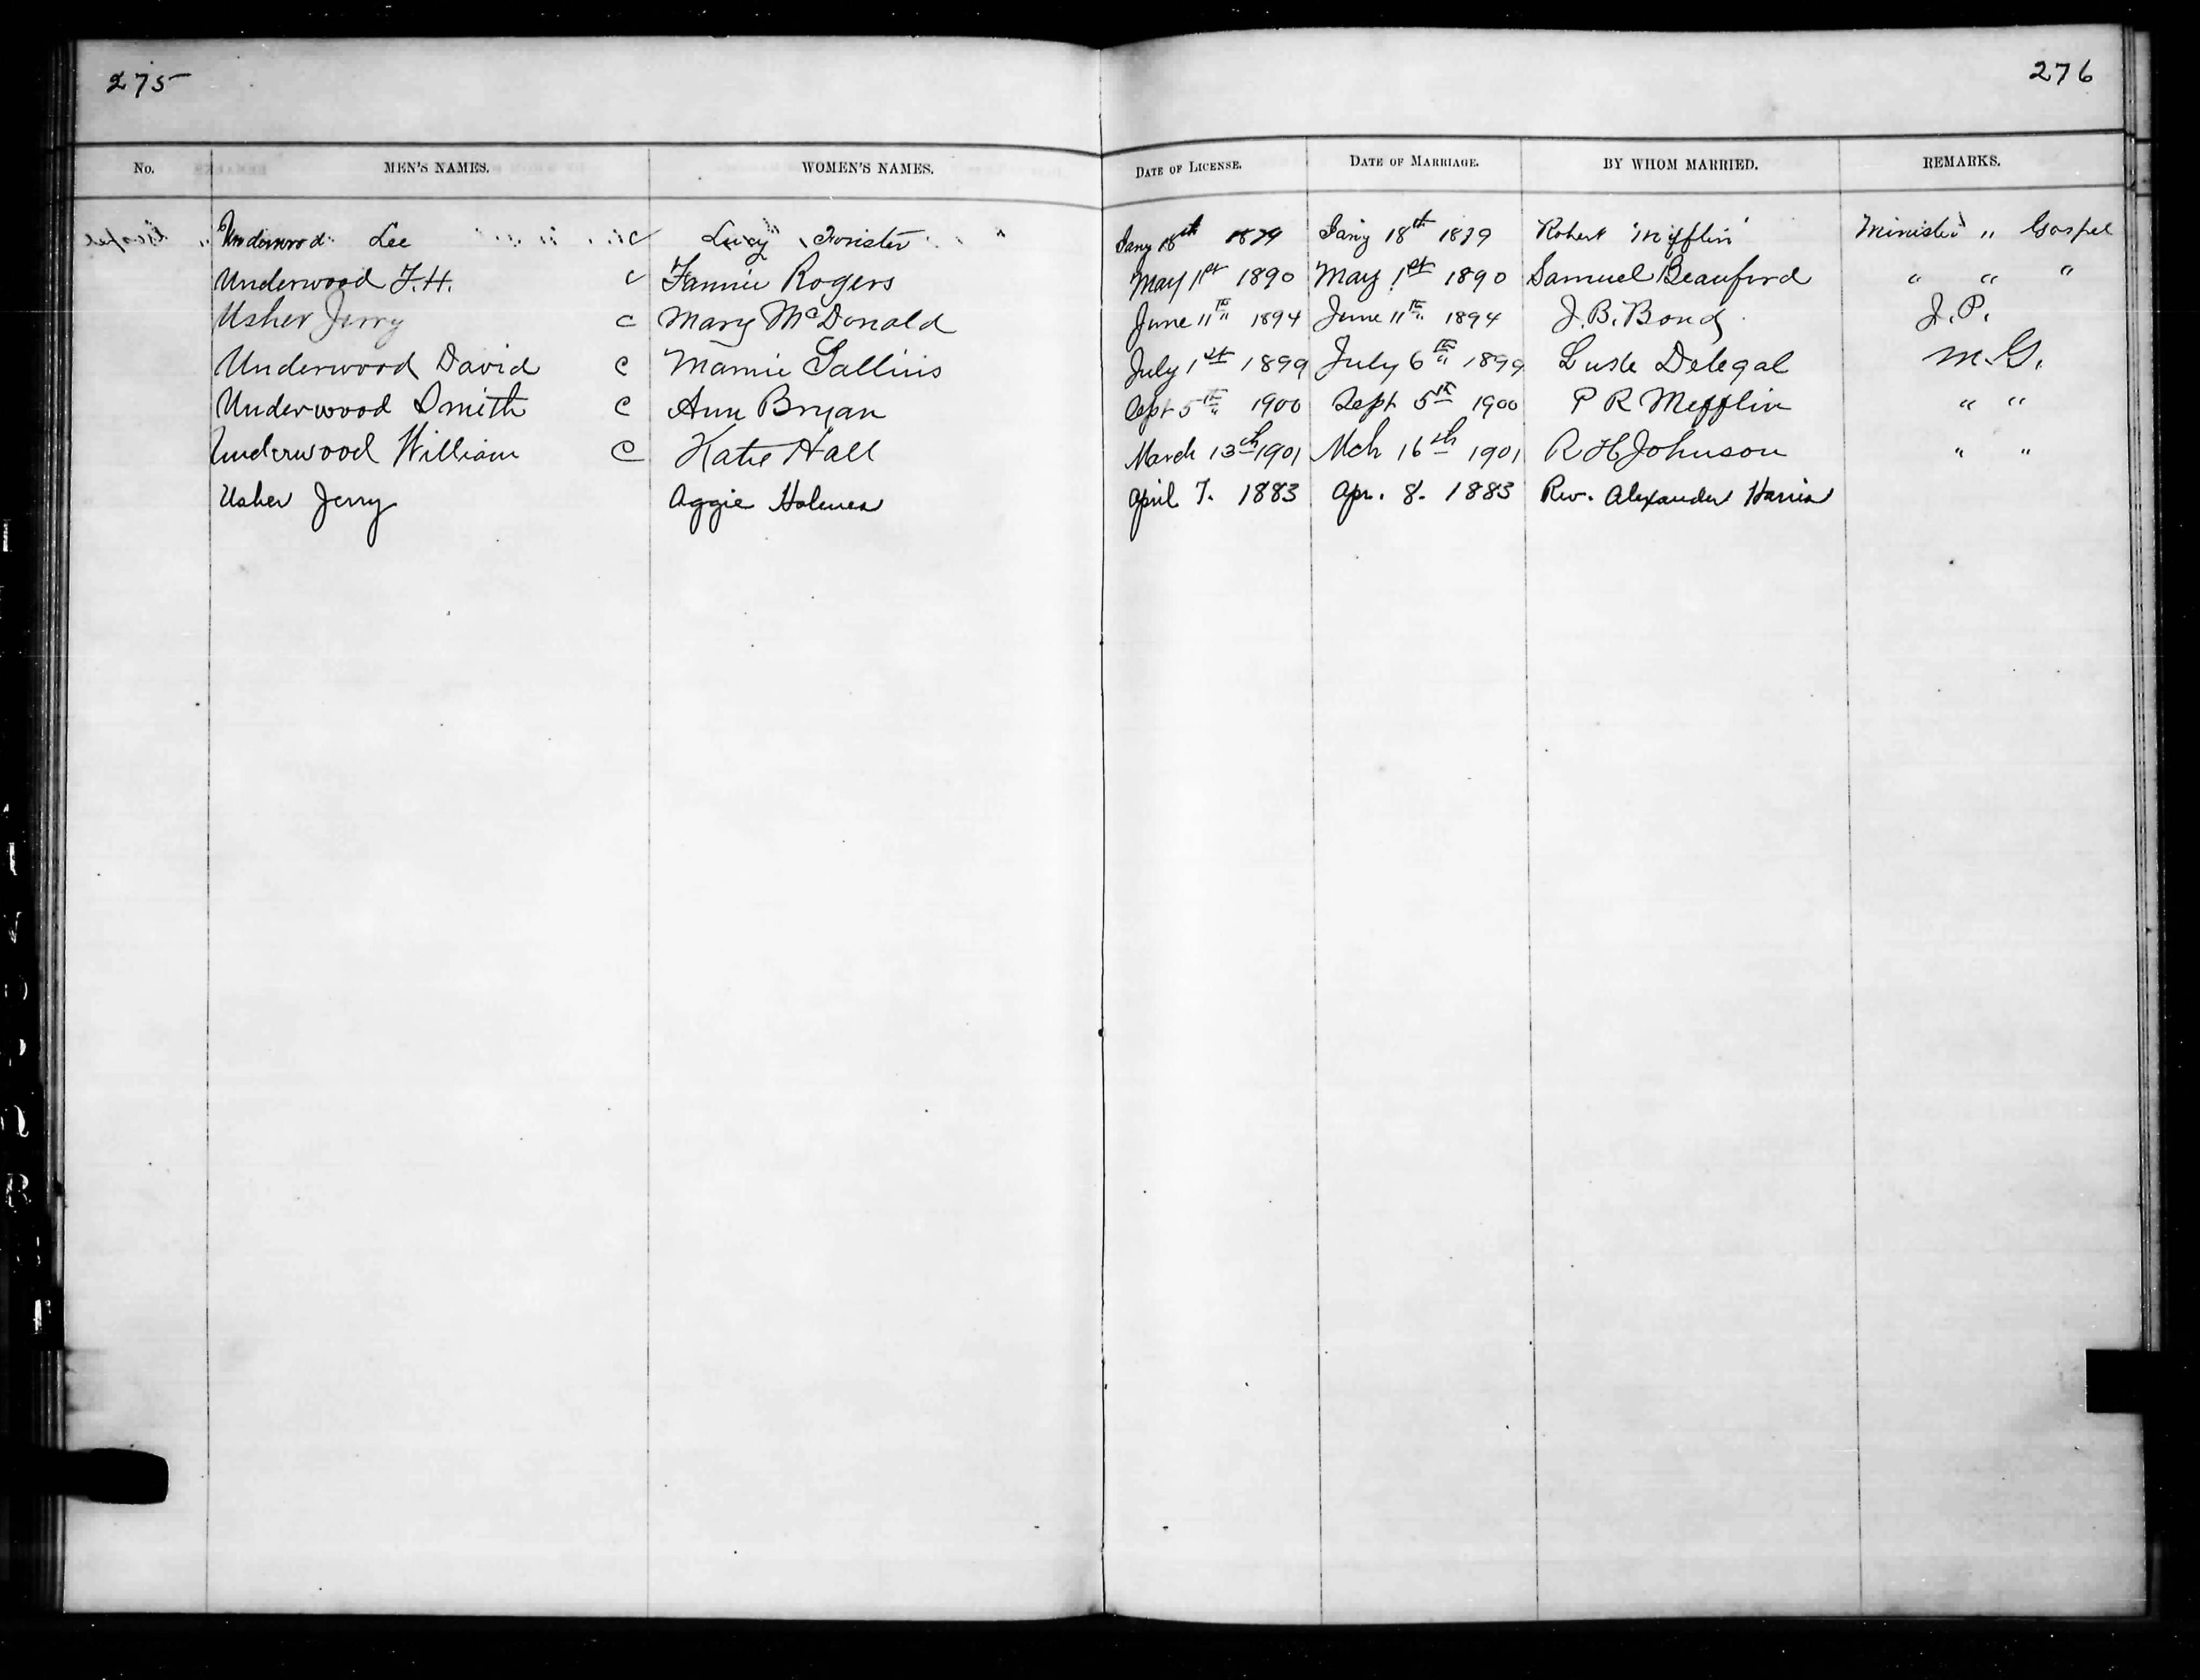 275
276
No. MEN'S NAMES. WOMEN'S NAMES. DATE OF LICENSE. DATE OF MARRIAGE. BY WHOM MARRIED. REMARKS.
Underwood Lee C Lucy Forister Jany 18th 1879 Jany 18th 1879 Robert Mifflin Minister " Gospel
Underwood F.H. c Fannie Rogers May 1st 1890 May 1st 1890 Samuel Beauford " " "
Usher Jerry c Mary McDonald June 11th 1894 June 11th 1894 J.B. Bond J.P.
Underwood David C Mamie July 1st 1899 July 6th 1899 Delegal M.G.
Underwood Smith C Ann Bryan Sept 5th 1900 Sept 5th 1900 P R Mefflin " "
Underwood William C Katie Hall March 13th 1901 Mch 16th 1901 R H Johnson " "
Usher Jerry Aggie Holmes April 7. 1883 Apr. 8. 1883 Rev. Alexander Harris